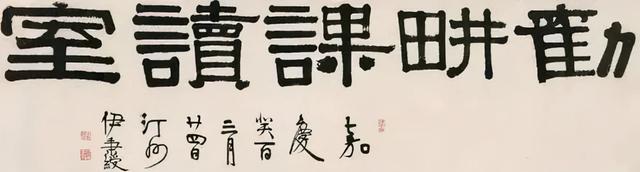 勸畊課讀室
嘉慶癸酉三月廿四日汀州伊秉綬